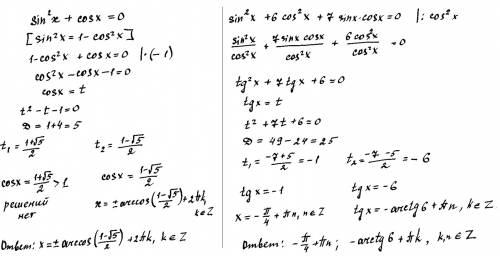 sin²x + cosx = 0
[sin²x = 1 - cos²x]
1 - cos²x + cosx = 0 |·(-1)
cos²x - cosx - 1 = 0
cosx = t
t² - t - 1 = 0
D = 1 + 4 = 5
t₁ = (1+√5)/2 t₂ = (1-√5)/2
cosx = (1+√5)/2 > 1 cosx = (1-√5)/2
решений нет x = ± arccos((1-√5)/2) + 2πk, k∈Z
Ответ: x = ± arccos((1-√5)/2) + 2πk, k∈Z
sin²x + 6cos²x + 7sinx·cosx = 0 |: cos²x
sin²x/cos²x + 7sinx cosx/cos²x + 6cos²x/cos²x = 0
tg²x + 7tgx + 6 = 0
tgx = t
t² + 7t + 6 = 0
D = 49 - 24 = 25
t₁ = (-7+5)/2 = -1 t₂ = (-7-5)/2 = -6
tgx = -1 tgx = -6
x = -π/4 + πn, n∈Z tgx = -arctg6 + πn, k∈Z
Ответ: -π/4 + πn; -arctg6 + πk, k,n∈Z